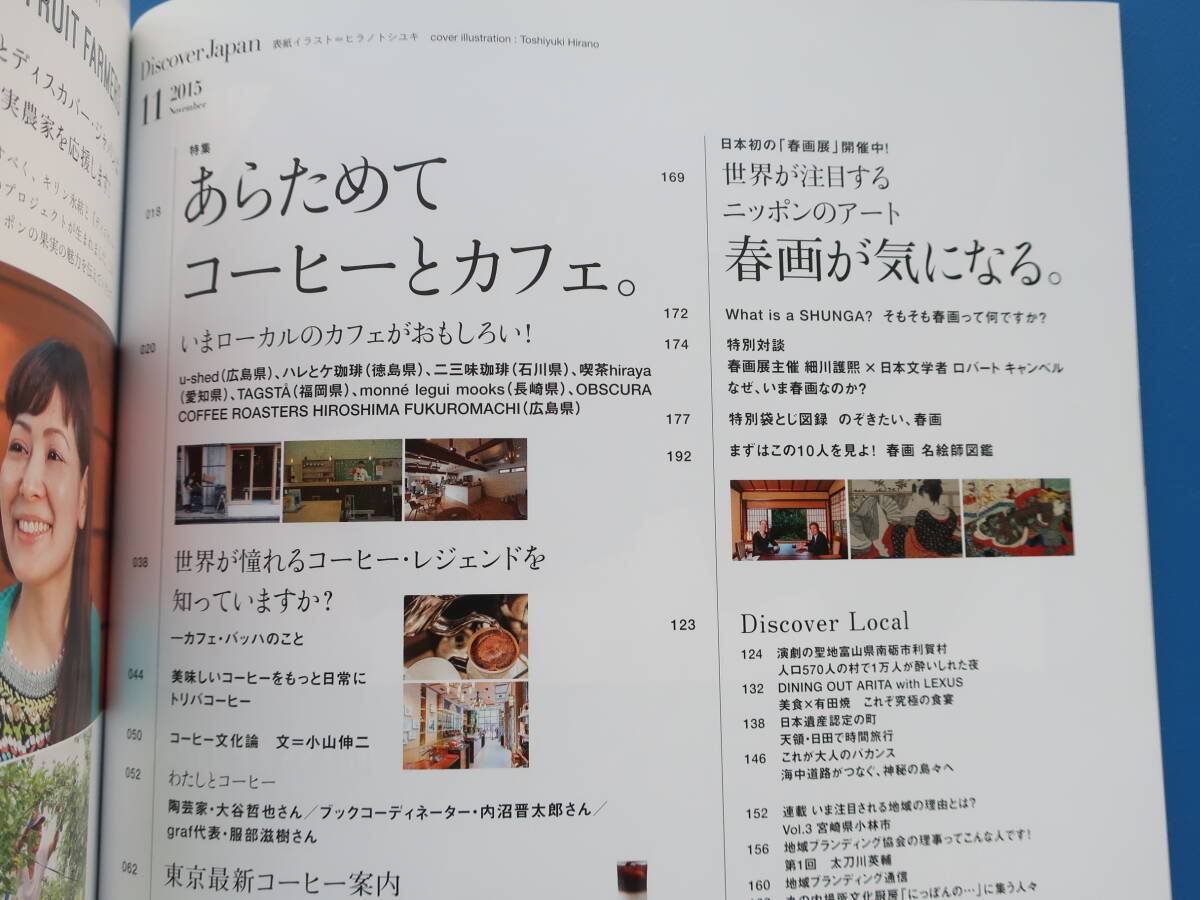 FRUIT FARMERS
とディスカバー・ジャパン
実農家を応援します
Discover Japan 表紙イラスト＝ヒラノトシユキ cover illustration : Toshiyuki Hirano
11 2015
November
特集
018
あらためて
コーヒーとカフェ。
020
いまローカルのカフェがおもしろい！
u-shed（広島県）、ハレとケ珈琲（徳島県）、二三味珈琲（石川県）、喫茶hiraya
（愛知県）、TAGSTÅ（福岡県）、monné legui mooks（長崎県）、OBSCURA
COFFEE ROASTERS HIROSHIMA FUKUROMACHI（広島県）
038
世界が憧れるコーヒー・レジェンドを
知っていますか？
―カフェ・バッハのこと
044
美味しいコーヒーをもっと日常に
トリバコーヒー
050
コーヒー文化論 文＝小山伸二
052
わたしとコーヒー
陶芸家・大谷哲也さん／ブックコーディネーター・内沼晋太郎さん／
graf代表・服部滋樹さん
062
東京最新コーヒー案内
日本初の「春画展」開催中！
169
世界が注目する
ニッポンのアート
春画が気になる。
172
What is a SHUNGA? そもそも春画って何ですか？
174
特別対談
春画展主催 細川護熙×日本文学者 ロバート キャンベル
なぜ、いま春画なのか？
177
特別袋とじ図録 のぞきたい、春画
192
まずはこの10人を見よ！ 春画 名絵師図鑑
123
Discover Local
124 演劇の聖地富山県南砺市利賀村
人口570人の村で1万人が酔いしれた夜
132 DINING OUT ARITA with LEXUS
美食×有田焼 これぞ究極の食宴
138 日本遺産認定の町
天領・日田で時間旅行
146 これが大人のバカンス
海中道路がつなぐ、神秘の島々へ
152 連載 いま注目される地域の理由とは？
Vol.3 宮崎県小林市
156 地域ブランディング協会の理事ってこんな人です！
第1回 太刀川英輔
160 地域ブランディング通信
丸の内場所文化厨房「にっぽんの…」に集う人々